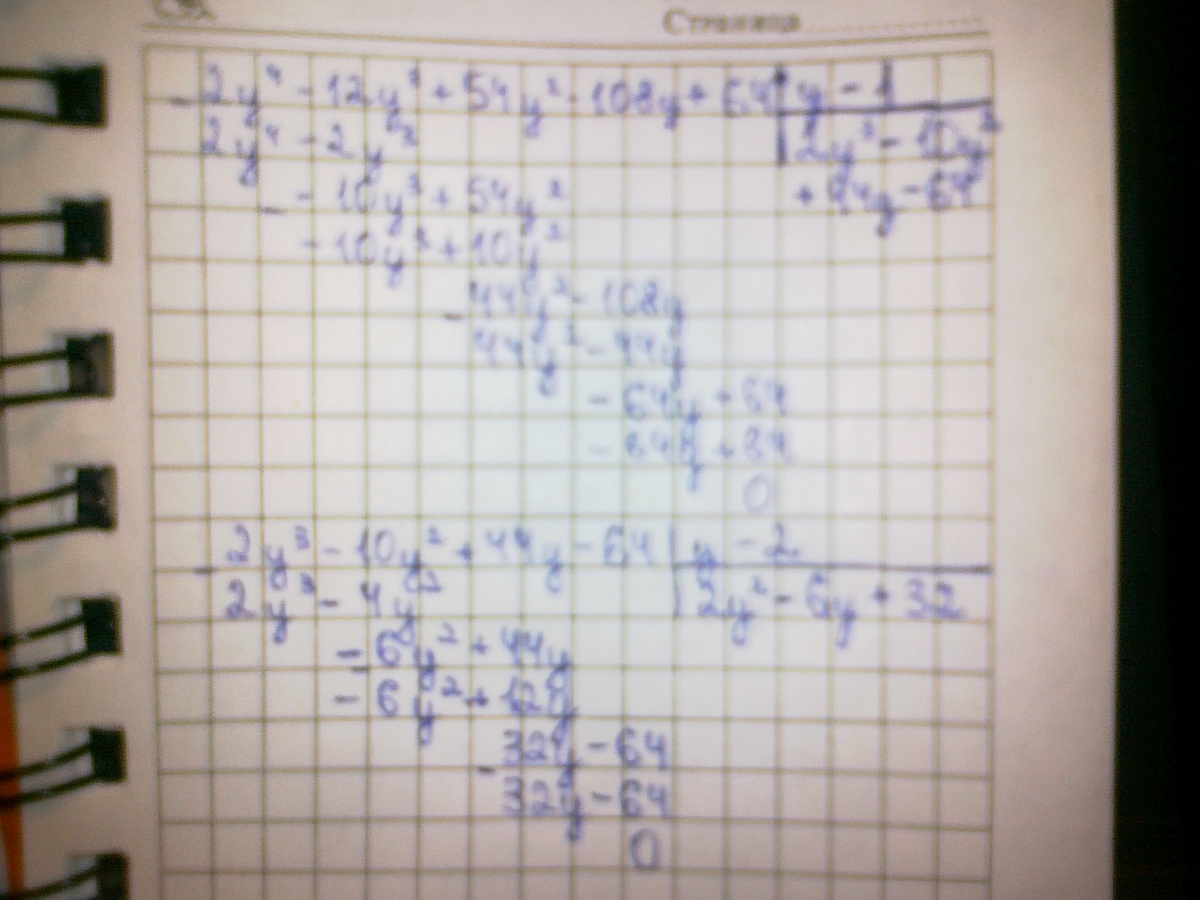 Страница
2y⁴ - 12y³ + 54y² - 108y + 64 | y - 1
- 2y⁴ - 2y³ | 2y³ - 10y²
- 10y³ + 54y² + 44y - 64
- - 10y³ + 10y²
44y² - 108y
- 44y² - 44y
- 64y + 64
- 64y + 64
0
2y³ - 10y² + 44y - 64 | y - 2
- 2y³ - 4y² | 2y² - 6y + 32
- 6y² + 44y
- 6y² + 12y
32y - 64
- 32y - 64
0